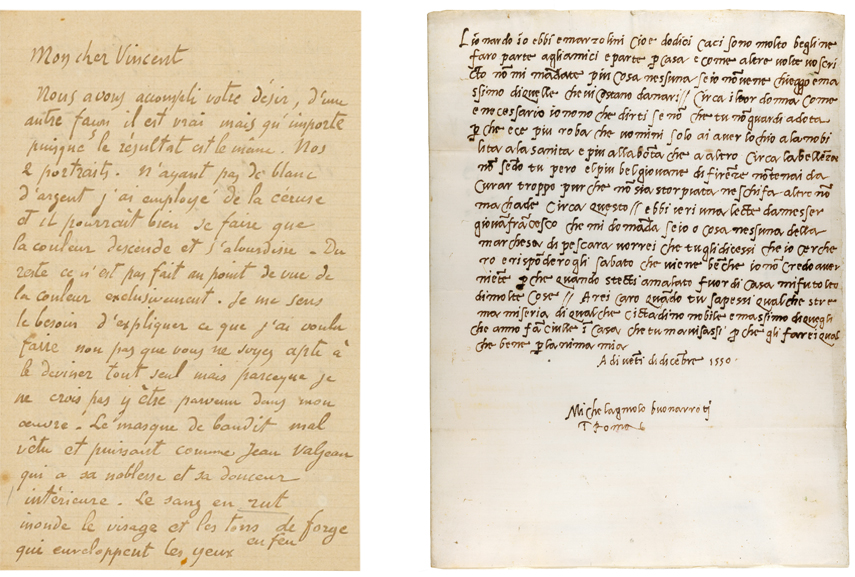 Mon cher Vincent
Nous avons acompli votre désir, d'une
autre façon il est vrai mais qu'importe
puisque le résultat est le meme. Nos
2 portraits. N'ayant pas de blanc
d'argent j'ai employé de la céruse
et il pourrait bien se faire que
la couleur descende et s'alourdisse - Du
reste ce n'est pas fait au point de vue de
la couleur exclusivement. Je me sens
le besoin d'expliquer ce que j'ai voulu
faire non pas que vous ne soyez apte à
le deviner tout seul mais parceque je
ne crois pas y être parvenu dans mon
œuvre - Le masque de bandit mal
vêtu et puissant comme Jean Valjean
qui a sa noblesse et sa douceur
intérieure. Le sang en rut
inonde le visage et les tons de forge
en feu
qui enveloppent les yeux
Lionardo io ebbi e marzolini cioe dodici caci sono molto begli ne
faro parte agli amici e parte p casa e come altre volte vo scri
cto nō mi mādate piu cosa nessuna se io nō ve ne chieggo e ma
ssimo di quelle che vi costano danari // Circa il tor donna come
e necessario io non o che dirti se nō che tu nō guardi a dota
p che e ce piu roba che uomini solo ai aver lochio alla nobi
lita alla sanita e piu alla bōta che a altro Circa la bellezza
nō sēdo tu pero el piu bel giovane di firēze nō te nai da
curar troppo pur che nō sia storpiata ne schifa altro nō
machade circa questo // ebbi ieri una lecte da messer
giovāfrācesco che mi domāda se io o cosa nessuna della
marchesa di pescara vorrei che tu gli dicessi che io cerche
ro e rispōderogli sabato che viene bēche io nō credo aver
niēte p che quando stecti amalato fuor di casa mi fu tolto
di molte cose // Arei caro quādo tu sapessi qualche stre
ma miseria di qualche cictadino nobile e massimo di quegli
che anno fāciulle ī casa che tu m avisassi p che gli farei qual
che bene p lanima mia
A di vēti di dicēbre 1550.
Michelagniolo buonarroti
ī Roma